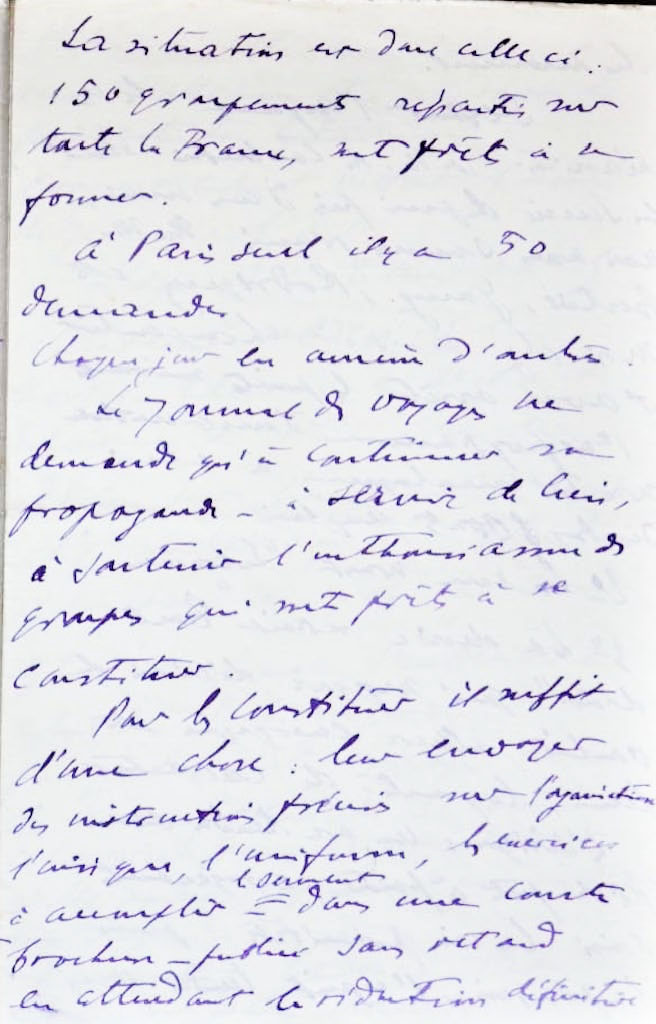 La situation est donc celle ci.
150 groupements répartis sur
toute la France, sont prêts à se
former.
à Paris seul il y a 50
demandes
Chaque jour en amène d'autres.
Le Journal des Voyages ne
demande qu'à continuer sa
propagande - à servir de lien,
à soutenir l'enthousiasme des
groupes qui sont prêts à se
constituer.
Pour les constituer il suffit
d'une chose : leur envoyer
des instructions précises sur l'organisation
l'insigne, l'uniforme, les exercices
le serment
à accomplir = dans une courte
brochure - publiée sans retard
en attendant la rédaction définitive